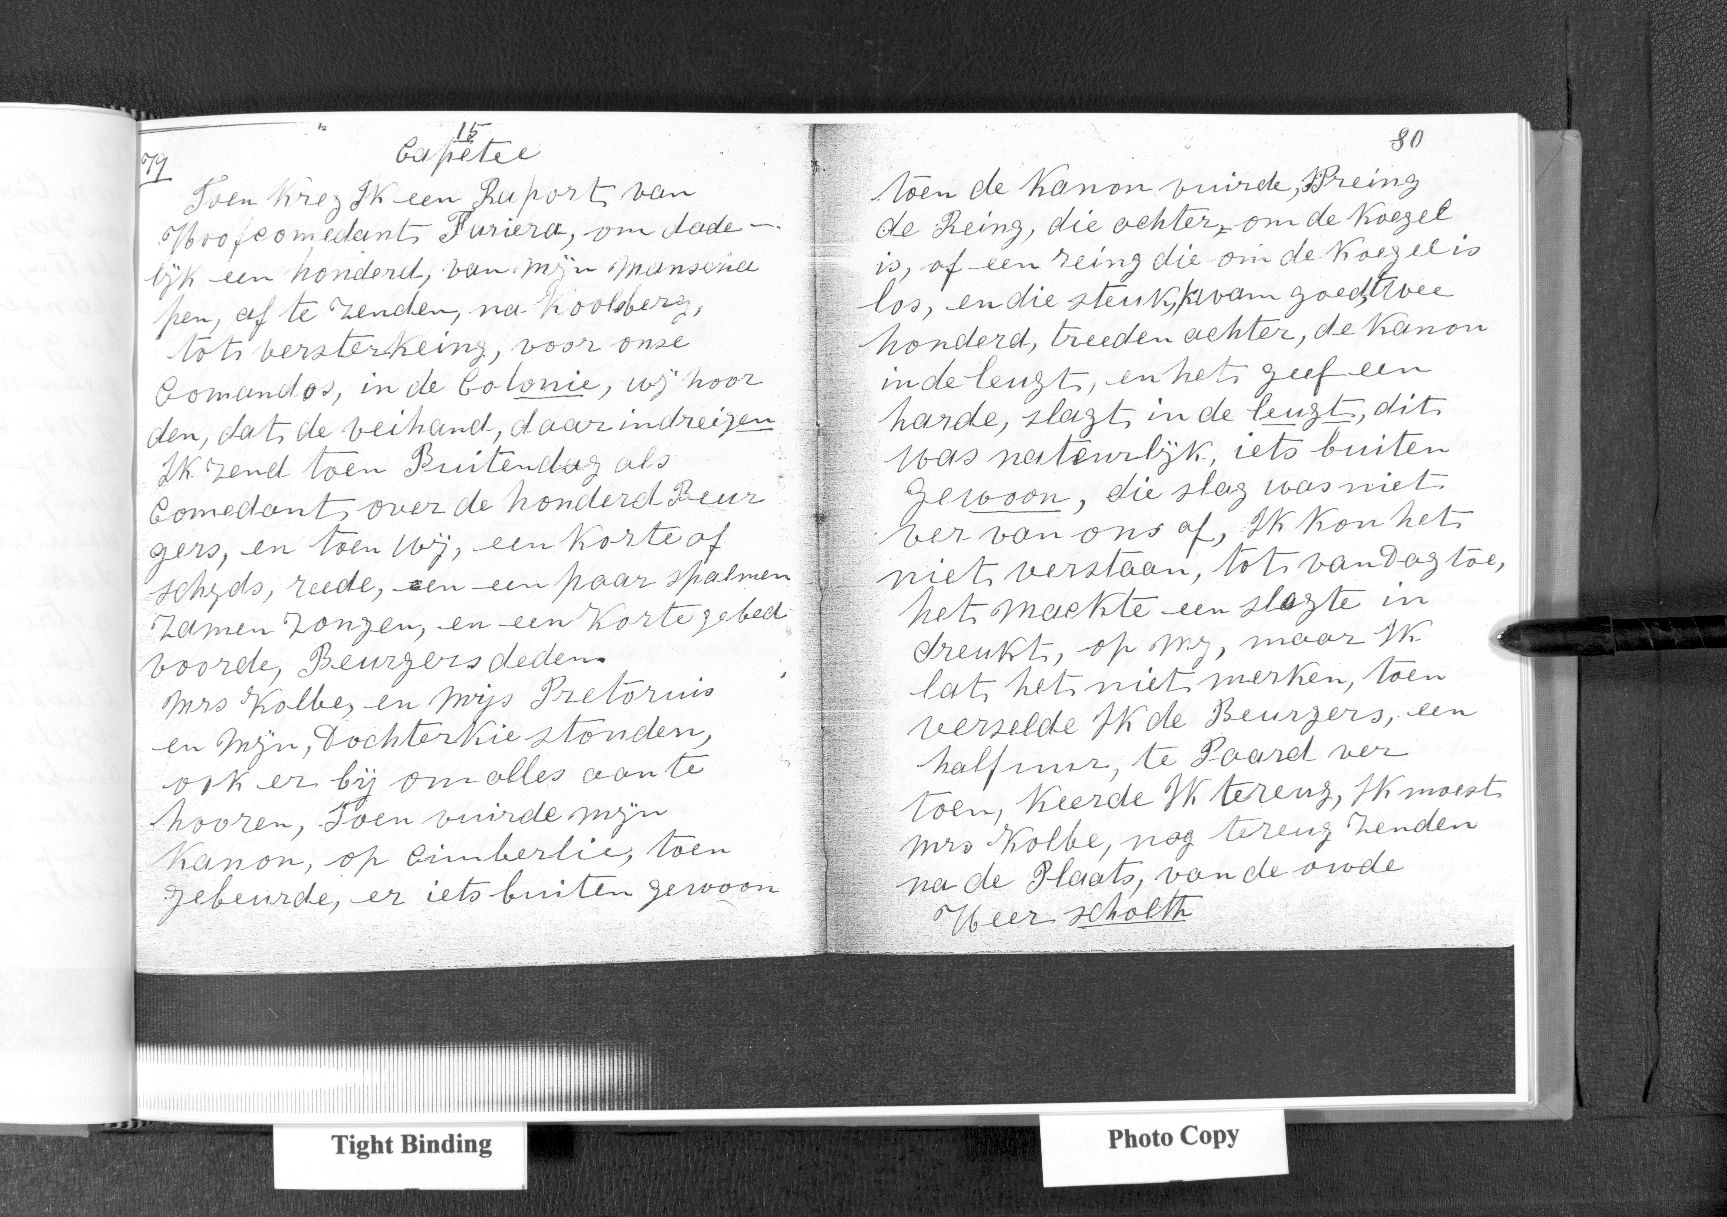 15
79
Capetee
Toen kreg Ik een Ruport van
Hoofcomedant Furiera, om dade-
lijk een honderd, van mijn manscha
pen, af te zenden, na Koolsberg,
tot versterkeing, voor onse
Comandos, in de Colonie, wij hoor
den, dat de veihand, daar indreigen
Ik zend toen Buitendag als
Comedant over de honderd Beur
gers, en toen wij, een korte af
schyds, reede, en een paar spalmen
zamen zongen, en een korte gebed
voorde, Beurgers deden.
Mrs Kolbe, en Mijs Pretoruis
en mijn, Dochterkie stonden,
ook er bij om alles aan te
hooren, Toen vuirde mijn
Kanon, op Cimberlie, toen
gebeurde, er iets buiten gewoon
80
toen de kanon vuirde, Spreing
de Reing, die achter, om de koegel
is, of een reing die om de koegel is
los, en die steuk, kwam goed, twee
honderd, treeden achter, de kanon
in de leugt, en het geef een
harde, slagt in de leugt, dit
was nateurlijk, iets buiten
gewoon, die slag was niet
ver van ons af, Ik kon het
niet verstaan, tot van Dag toe,
het maekte een slegte in
dreukt, op my, maar Ik
lat het niet merken, toen
verselde Ik de Beurgers, een
half uur, te Paard ver
toen, keerde Ik tereug, Ik moest
Mrs Kolbe, nog tereug zenden
na de Plaats, van de owde
Heer scholth
Tight Binding
Photo Copy